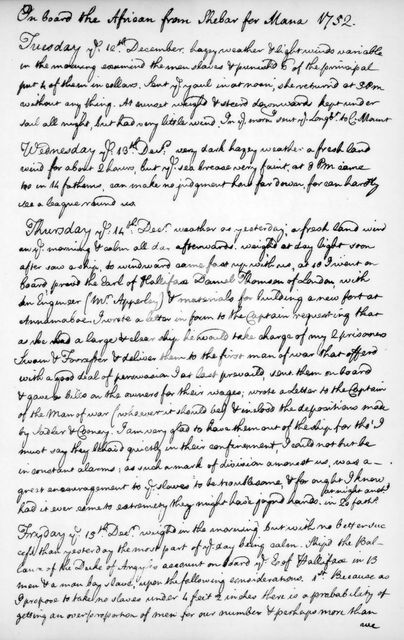 On board the African from Shebar for Mana 1752.
Tuesday yᵉ. 12ᵗʰ December. hazey weather & light winds variable
in the morning examind the men slaves & punisht 6 of the principal
put 4 of them in collars. Sent yᵉ yaul in at noon, she returnd at 3 PM
without any thing. At sunset weighd & steerd downwards kept under
sail all night, but had very little wind. In yᵉ mornᵍ sent yᵉ Longbᵗ to C. Mount
Wednesday yᵉ. 13ᵗʰ Decʳ. very dark hazey weather a fresh land
wind for about 2 hours, but yᵉ sea breese very faint, at 8 PM came
too in 14 fathoms, can make no judgment how far down, for can hardly
see a league round us.
Thursday yᵉ. 14ᵗʰ Decʳ. weather as yesterday, a fresh land wind
in yᵉ morning & calm all day afterwards. weighd at day light soon
after saw a ship to windward came fast up with us, at 10 I went on
board, provd the Earl of Hallifax Daniel Thomson of London, with
an Engineer (Mʳ. Apperly) & materials for building a new fort at
Annamaboe. I wrote a letter in form to the Captain requesting that
as he had a large & clear ship he would take charge of my 2 prisoners
Swain & Forrester & deliver them to the first man of war that offerd
with a good deal of perswasion I at last prevaild, sent them on board
& gave bills on the owners for their wages; wrote a letter to the Captain
of the Man of war (whoever it should be) & inclosd the depositions made
by Sadler & Coney. I am very glad to have them out of the ship for tho' I
must say they behavd quietly in their confinement, I could not but be
in constant alarms; as such a mark of division amongst us, was a
great encouragement to yᵉ slaves to be troublesome, & for ought I know,
had it ever come to extremity they might have joynd hands. in 20 fathˢ
Fryday yᵉ. 15ᵗʰ Decʳ. weighd in the morning but with no better suc-
cess than yesterday the most part of yᵉ day being calm. Shipd the Bal-
lance of the Duke of Argyle's account on board yᵉ E. of Hallifax in 13
men & a man boy slave, upon the following considerations. 1ˢᵗ Because as
I propose to take no slaves under 4 feit 2 inches there is a probability of
getting an overproportion of men for our number & perhaps more than
we